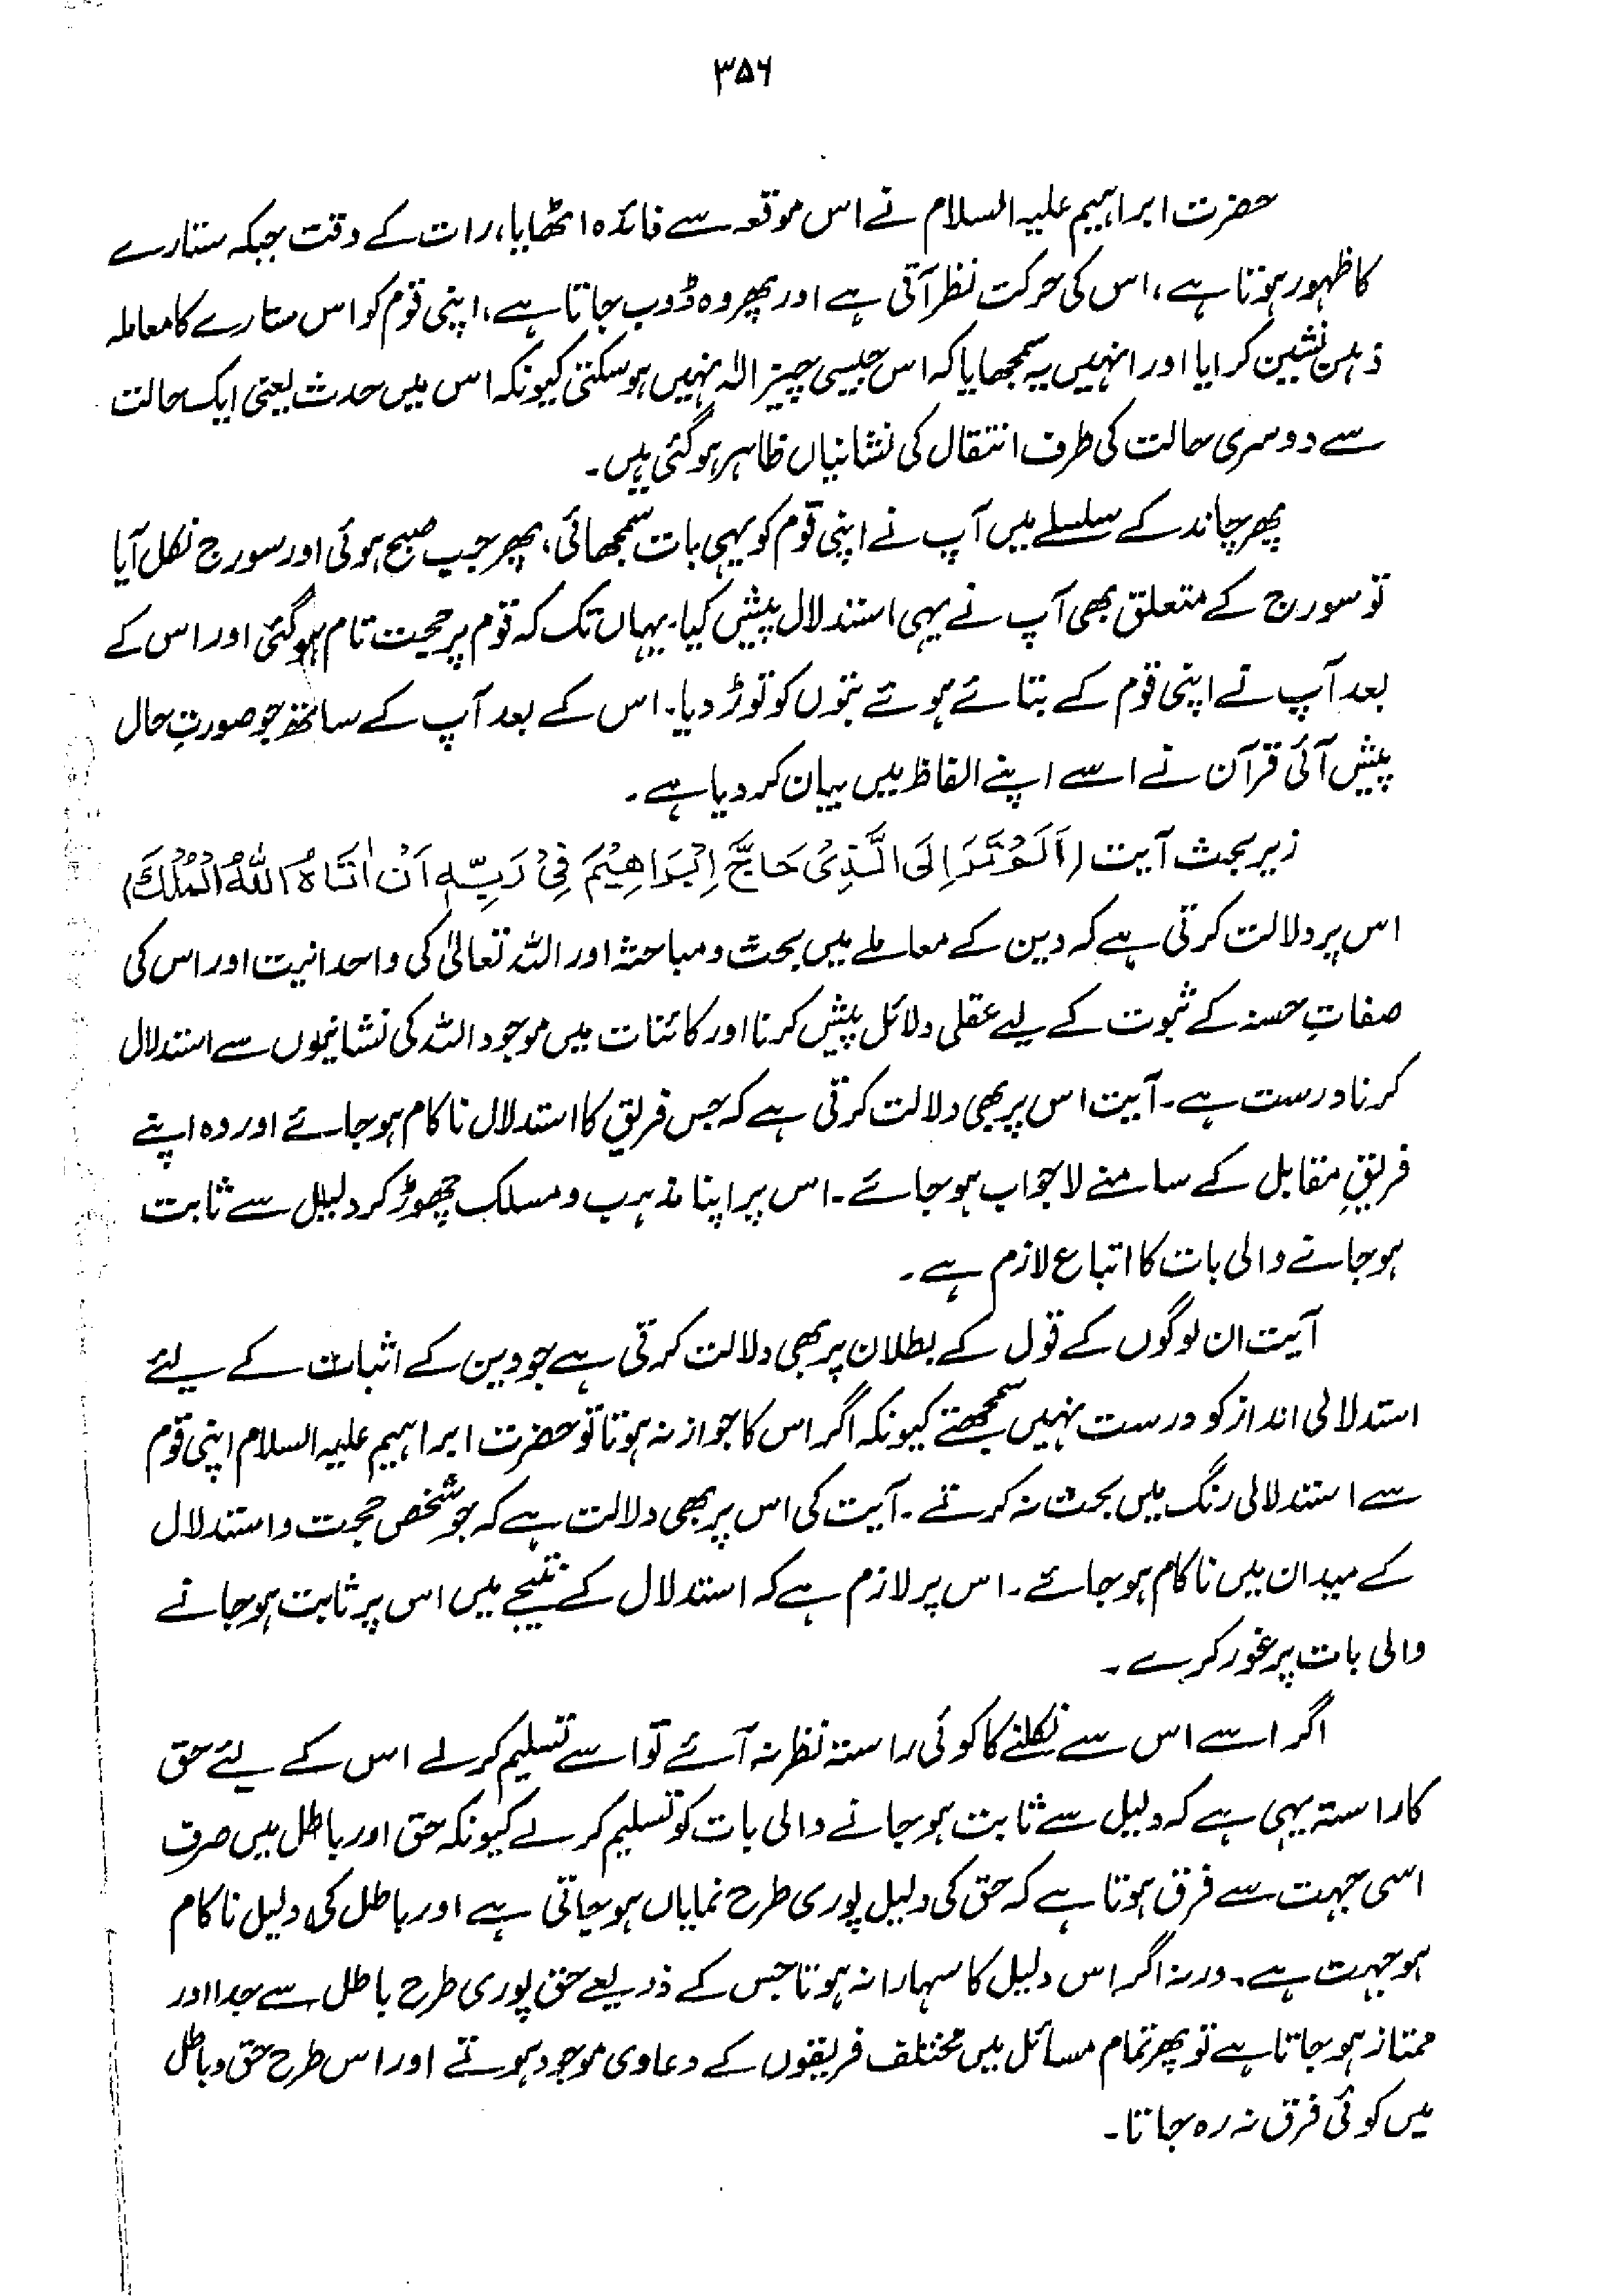 ۳۵۶
حضرت ابراہیم علیہ السلام نے اس موقعہ سے فائدہ اٹھایا، رات کے وقت جبکہ ستارے
کا ظہور ہوتا ہے، اس کی حرکت نظر آتی ہے اور پھر وہ ڈوب جاتا ہے، اپنی قوم کو اس ستارے کا معاملہ
ذہن نشین کرایا اور انہیں یہ سمجھایا کہ اس جیسی چیز الٰہ نہیں ہوسکتی کیونکہ اس میں حدث یعنی ایک حالت
سے دوسری حالت کی طرف انتقال کی نشانیاں ظاہر ہوگئی ہیں۔
پھر چاند کے سلسلے میں آپ نے اپنی قوم کو یہی بات سمجھائی، پھر جب صبح ہوئی اور سورج نکل آیا
تو سورج کے متعلق بھی آپ نے یہی استدلال پیش کیا۔ یہاں تک کہ قوم پر حجت تام ہوگئی اور اس کے
بعد آپ نے اپنی قوم کے بنائے ہوئے بتوں کو توڑ دیا۔ اس کے بعد آپ کے ساتھ جو صورتِ حال
پیش آئی قرآن نے اسے اپنے الفاظ میں بیان کر دیا ہے۔
زیر بحث آیت (اَلَمْ تَرَ اِلَی الَّذِیْ حَاجَّ اِبْرَاهِیْمَ فِیْ رَبِّهٖ اَنْ اٰتَاهُ اللّٰهُ الْمُلْكَ)
اس پر دلالت کرتی ہے کہ دین کے معاملے میں بحث و مباحثہ اور اللہ تعالیٰ کی واحدانیت اور اس کی
صفاتِ حسنہ کے ثبوت کے لیے عقلی دلائل پیش کرنا اور کائنات میں موجود اللہ کی نشانیوں سے استدلال
کرنا درست ہے۔ آیت اس پر بھی دلالت کرتی ہے کہ جس فریق کا استدلال ناکام ہوجائے اور وہ اپنے
فریقِ مقابل کے سامنے لاجواب ہوجائے۔ اس پر اپنا مذہب و مسلک چھوڑ کر دلیل سے ثابت
ہوجانے والی بات کا اتباع لازم ہے۔
آیت ان لوگوں کے قول کے بطلان پر بھی دلالت کرتی ہے جو دین کے اثبات کے لیئے
استدلالی انداز کو درست نہیں سمجھتے کیونکہ اگر اس کا جواز نہ ہوتا تو حضرت ابراہیم علیہ السلام اپنی قوم
سے استدلالی رنگ میں بحث نہ کرتے۔ آیت کی اس پر بھی دلالت ہے کہ جو شخص حجت و استدلال
کے میدان میں ناکام ہوجائے۔ اس پر لازم ہے کہ استدلال کے نتیجے میں اس پر ثابت ہوجانے
والی بات پر غور کرے۔
اگر اسے اس سے نکلنے کا کوئی راستہ نظر نہ آئے تو اسے تسلیم کرلے اس کے لیئے حق
کا راستہ یہی ہے کہ دلیل سے ثابت ہوجانے والی بات کو تسلیم کرلے کیونکہ حق اور باطل میں صرف
اسی جہت سے فرق ہوتا ہے کہ حق کی دلیل پوری طرح نمایاں ہوجاتی ہے اور باطل کی دلیل ناکام
ہوجہت ہے۔ ورنہ اگر اس دلیل کا سہارا نہ ہوتا جس کے ذریعے حق پوری طرح باطل سے جدا اور
ممتاز ہوجاتا ہے تو پھر تمام مسائل میں مختلف فریقوں کے دعاوی موجود ہوتے اور اس طرح حق و باطل
میں کوئی فرق نہ رہ جاتا۔